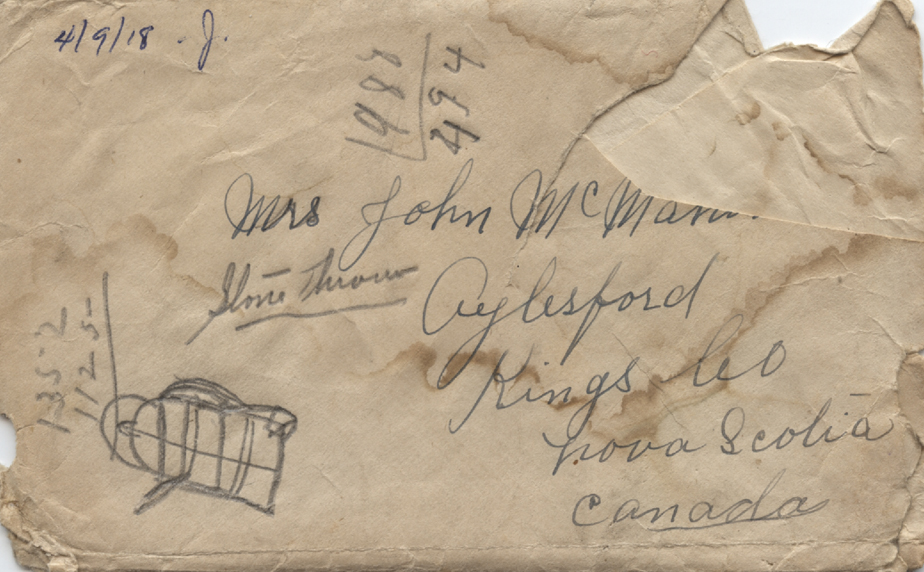 4/9/18 - J.
488
494
Mrs John McMann
Stone Throw
Aylesford
Kings Co
Nova Scotia
Canada
1352
1125